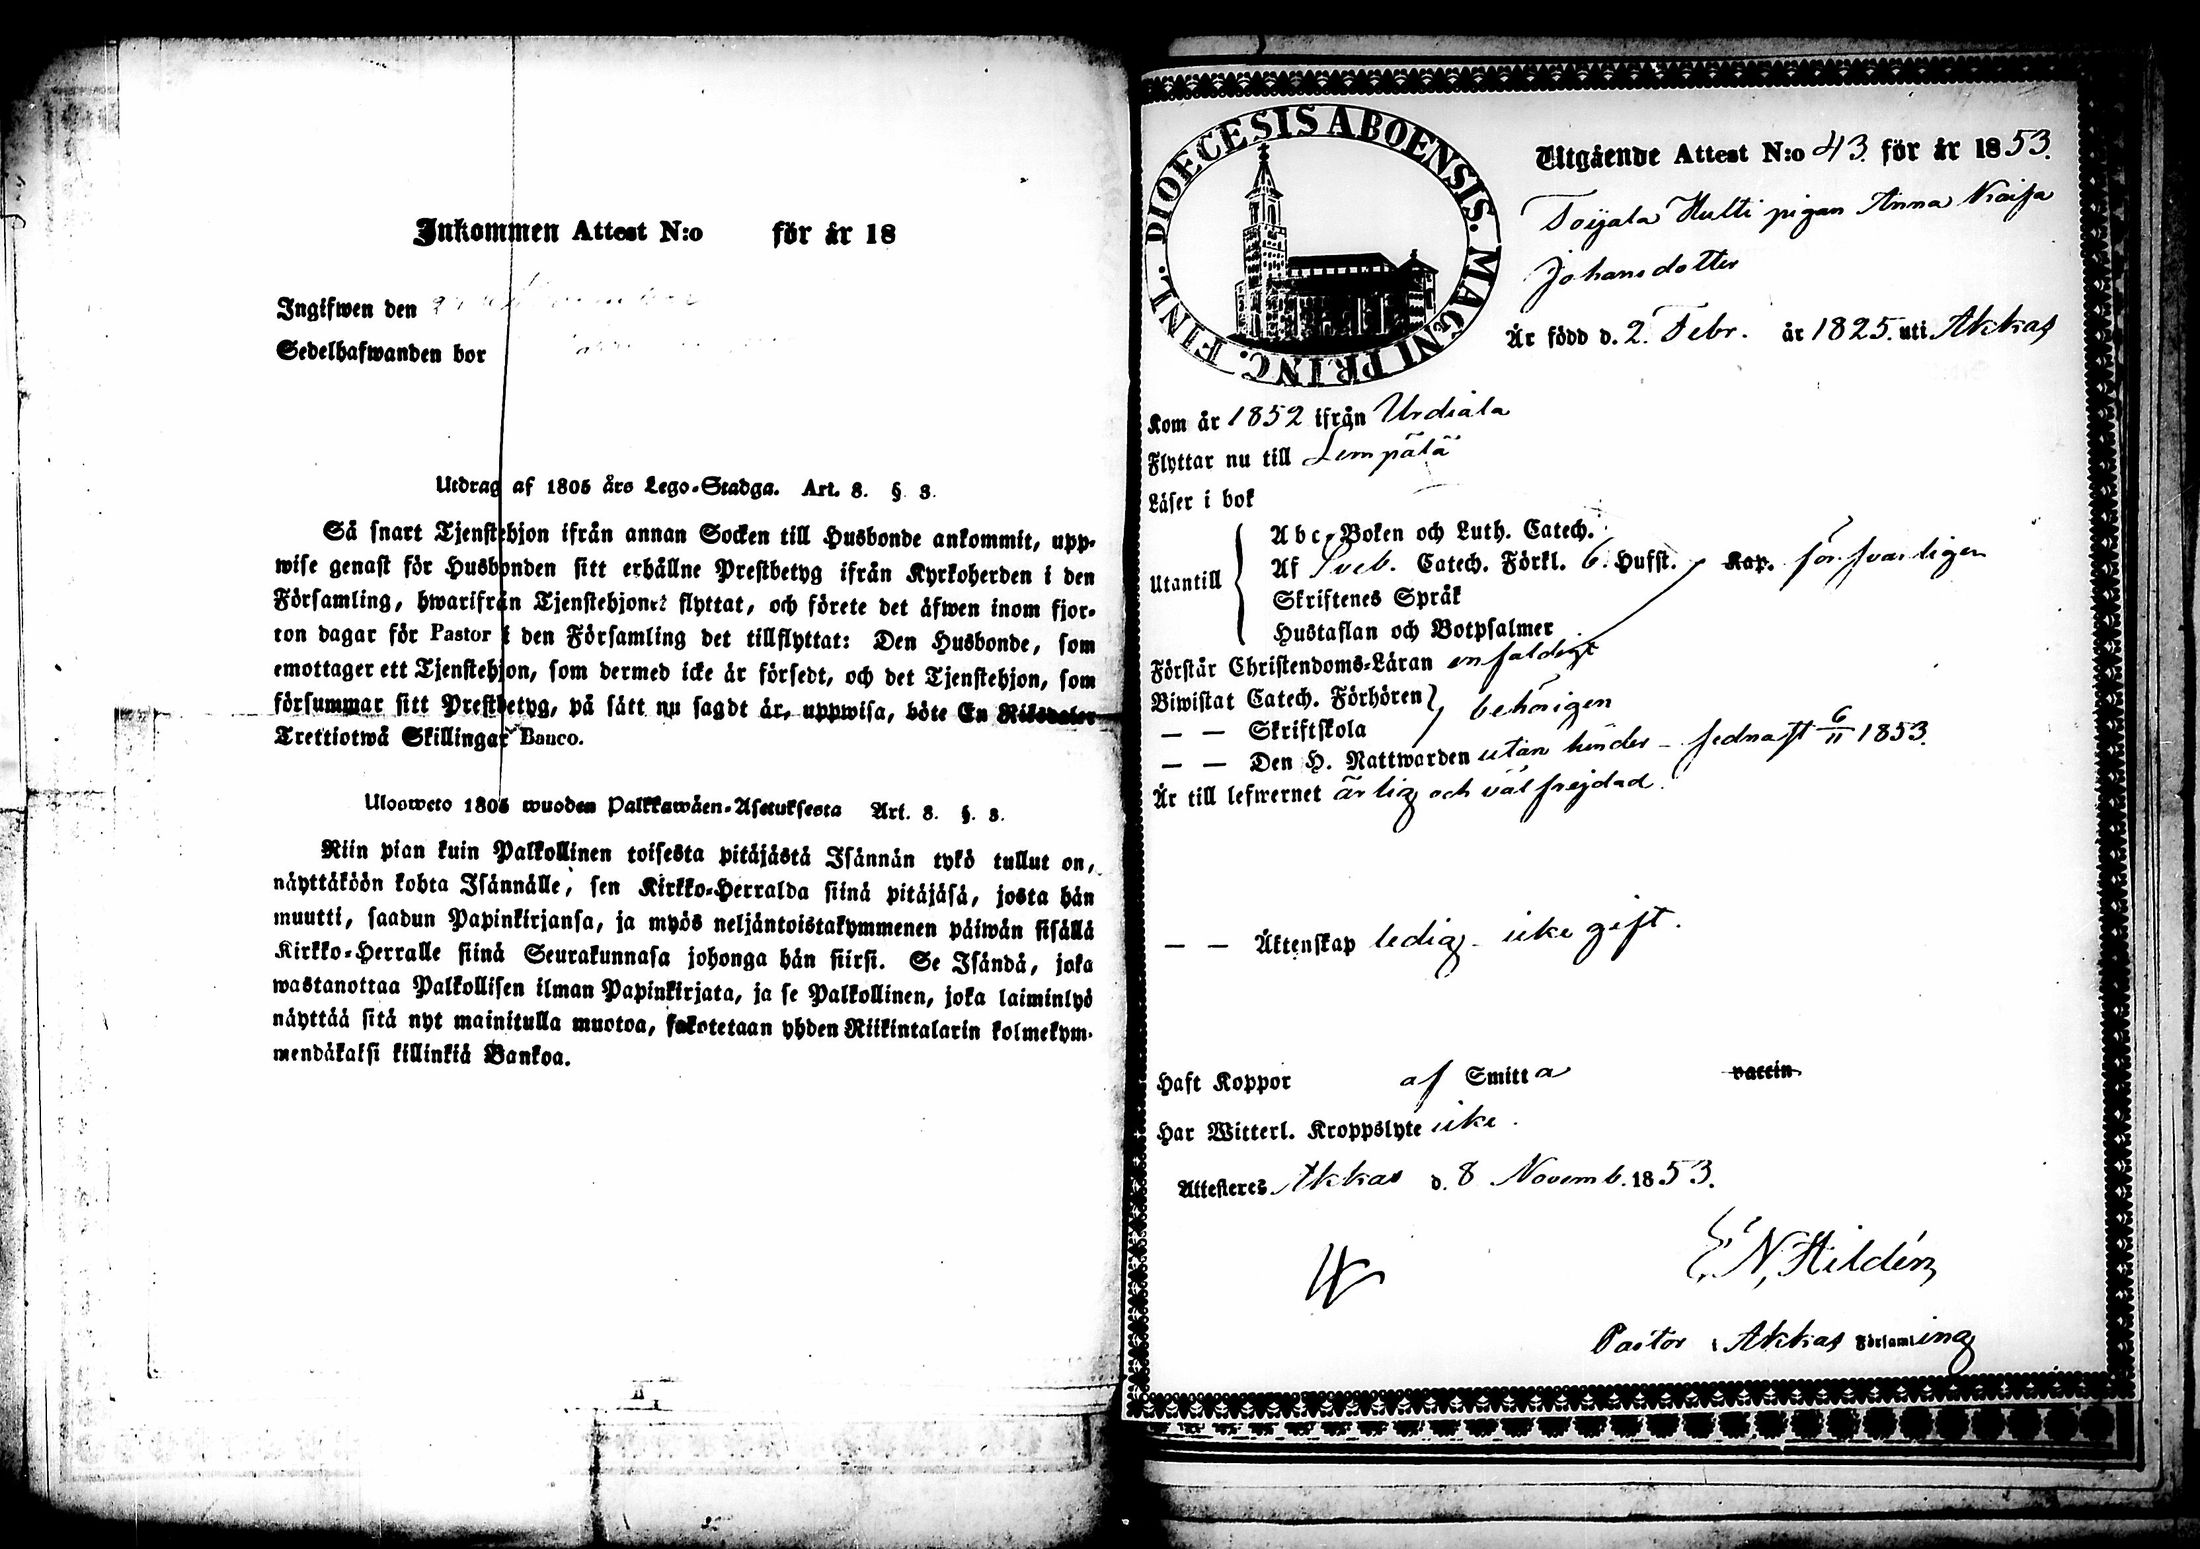 Inkommen Attest N:o för år 18
Ingifwen den
Sedelhafwanden bor
Utdrag af 1805 års Lego-Stadga. Art. 8. § 3.
Så snart Tjenstehjon ifrån annan Socken till Husbonde ankommit, upp-
wise genast för Husbonden sitt erhållne Prestbetyg ifrån Kyrkoherden i den
Församling, hwarifrån Tjenstehjonet flyttat, och förete det äfwen inom fjor-
ton dagar för Pastor i den Församling det tillflyttat: Den Husbonde, som
emottager ett Tjenstehjon, som dermed icke är försedt, och det Tjenstehjon, som
försummar sitt Prestbetyg, på sätt nu sagdt är, uppwisa, böte En Riksdaler
Trettiotwå Skillingar Banco.
Ulosweto 1805 wuoden Palkkawäen-Asetuksesta Art. 8. §. 3.
Niin pian kuin Palkollinen toisesta pitäjästä Isännän tykö tullut on,
näyttäköön kohta Isännälle, sen Kirkko-Herralda siinä pitäjäsä, josta hän
muutti, saadun Papinkirjansa, ja myös neljäntoistakymmenen päiwän sisällä
Kirkko-Herralle siinä Seurakunnasa johonga hän siirsi. Se Isändä, joka
wastanottaa Palkollisen ilman Papinkirjata, ja se Palkollinen, joka laiminlyö
näyttää sitä nyt mainitulla muotoa, sakotetaan yhden Riikintalarin kolmekym-
mendäkaksi killinkiä Bankoa.
DIOECESIS ABOENSIS. MAGNI PRINC. FINL.
Utgående Attest N:o 43. för år 1853.
Toijala Hulti pigan Anna Kaisa
Johansdotter
Är född d. 2. Febr. år 1825. uti Akkas
Kom år 1852 ifrån Urdiala
Flyttar nu till Lempälä
Läser i bok
Utantill
Abc-Boken och Luth. Catech.
Af Sveb. Catech. Förkl. 6. Hufst. Kap. försvarligen
Skriftenes Språk
Hustaflan och Botpsalmer
Förstår Christendoms-Läran enfaldigt
Biwistat Catech. Förhören
— — Skriftskola behörigen
— — Den H. Nattwarden utan hinder - sednast 6/11 1853.
Är till lefwernet ärlig och väl frejdad.
— — Äktenskap ledig - icke gift.
Haft Koppor af Smitta vaccin.
Har Witterl. Kroppslyte icke.
Attesteres Akkas d. 8 Novemb. 1853.
E. N. Hildén
Pastor i Akkas Församling